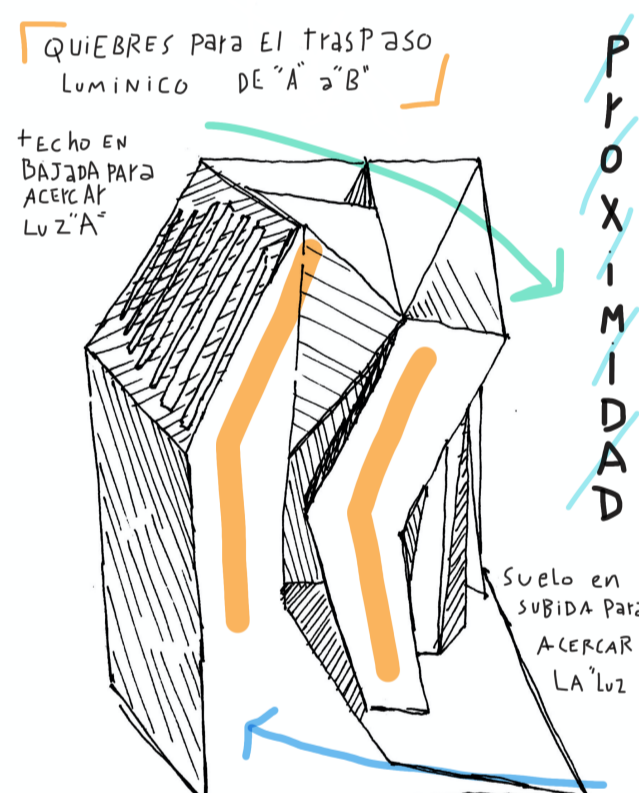 QUiEBRES Para El trasPaso
LUMiNiCO DE "A" a "B"
tEcho EN
BAJaDA PARa
ACERCAR
LUZ "A"
PrOXiMiDAD
Suelo en
SUBiDA Para
ACERCAR
LA "Luz